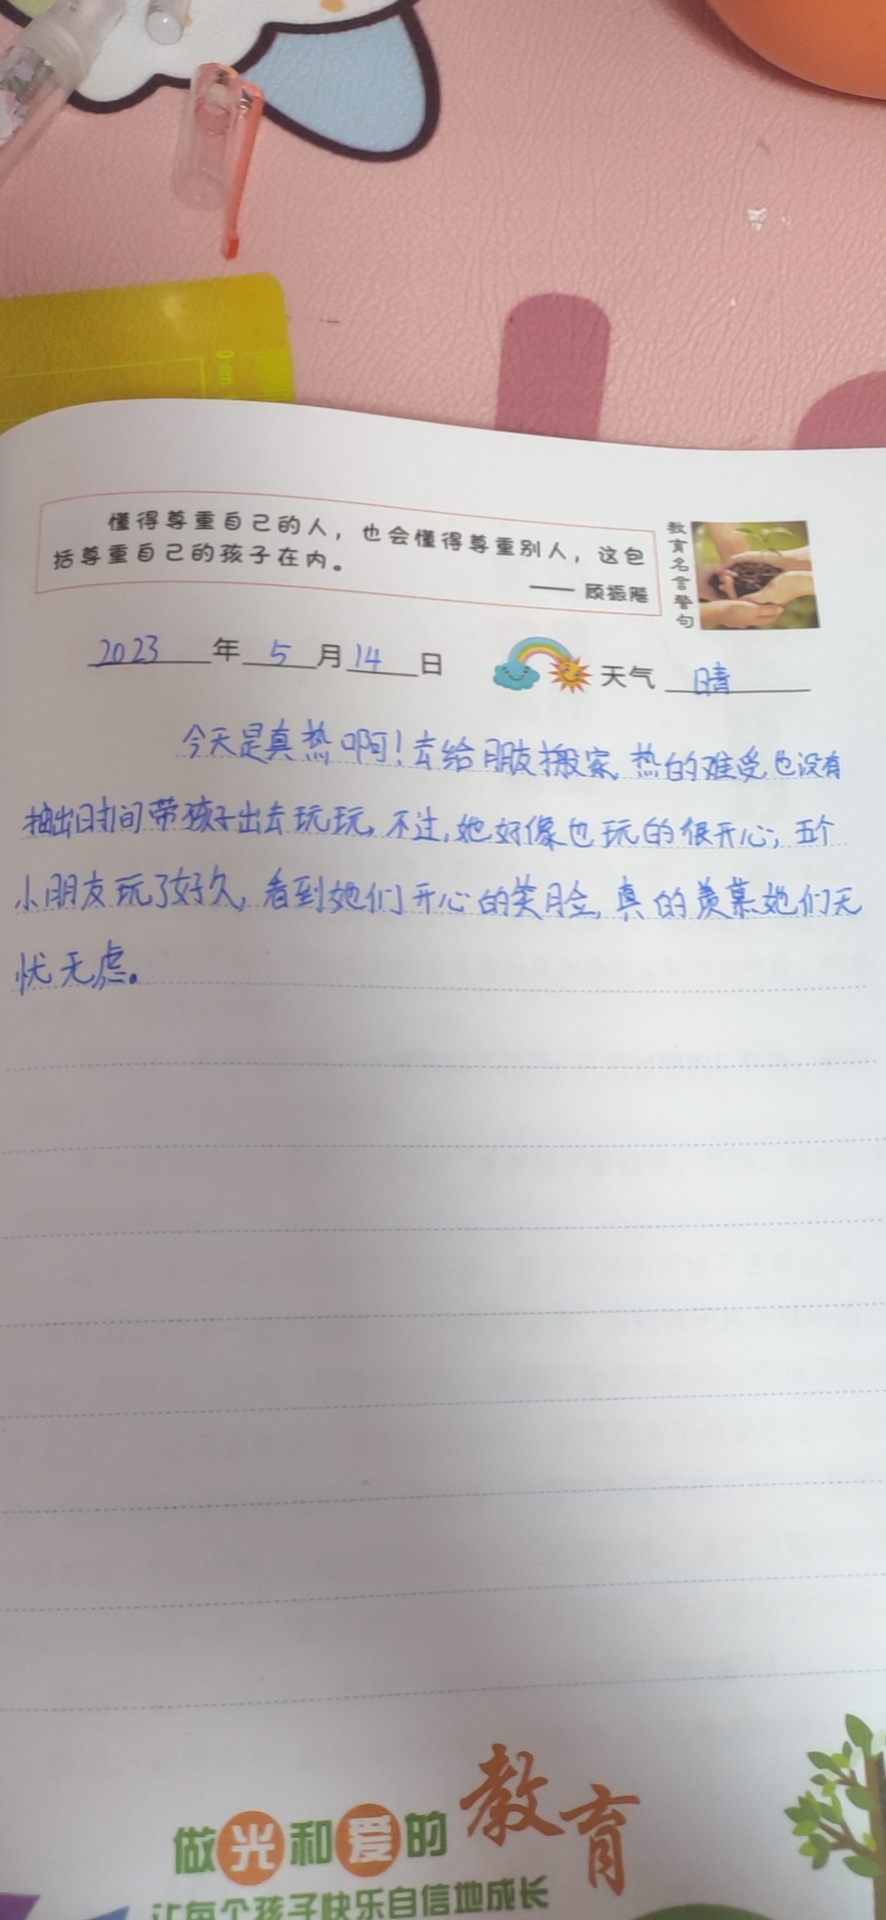 0 cm
懂得尊重自己的人，也会懂得尊重别人，这包
括尊重自己的孩子在内。
—— 顾振飚
教育名言警句
2023年5月14日 天气 晴
今天是真热啊！去给朋友搬家，热的难受，也没有
抽出时间带孩子出去玩玩，不过，她好像也玩的很开心，五个
小朋友玩了好久，看到她们开心的笑脸，真的羡慕她们无
忧无虑。
做光和爱的教育
让每个孩子快乐自信地成长